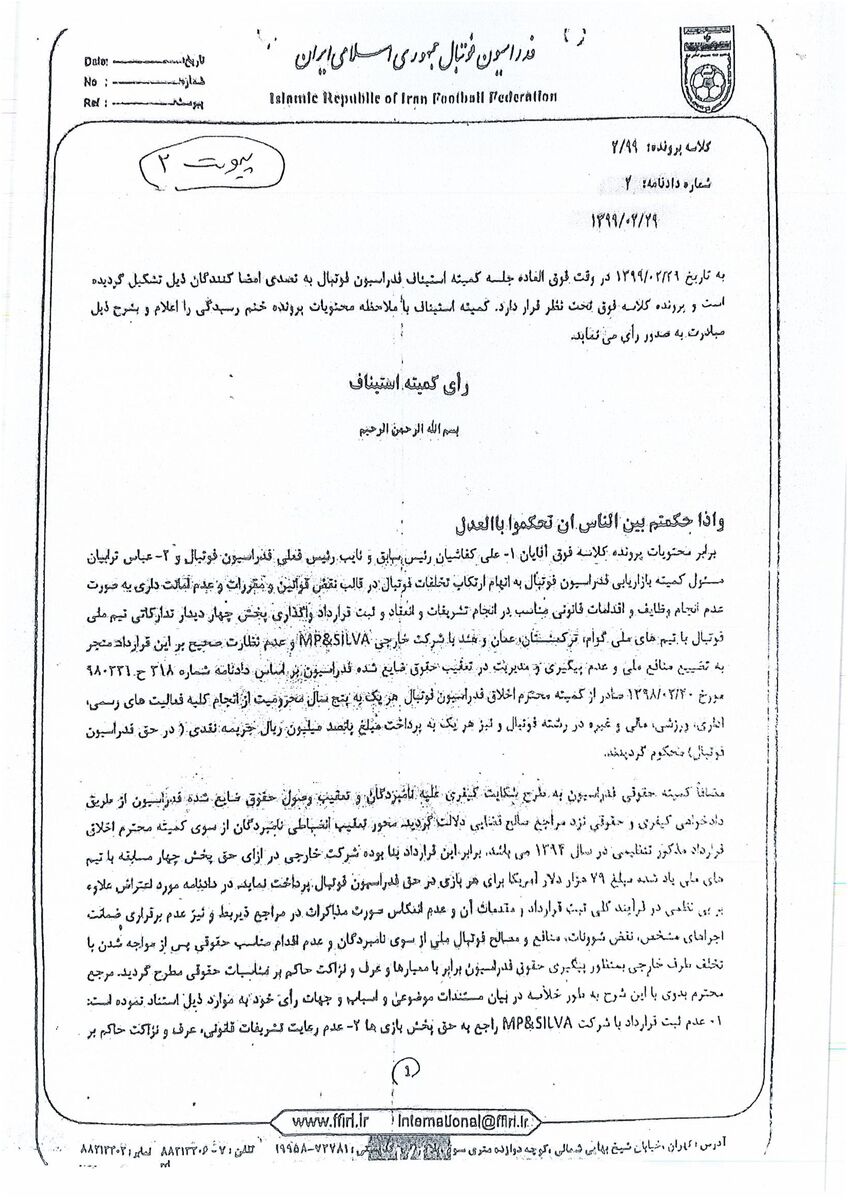 فدراسیون فوتبال جمهوری اسلامی ایران
Islamic Republic of Iran Football Federation
Date: تاریخ:
No : شماره:
Ref : پیوست:
پیوست ۲
کلاسه پرونده: ۲/۹۹
شماره دادنامه: ۲
۱۳۹۹/۰۲/۲۹
به تاریخ ۱۳۹۹/۰۲/۲۹ در وقت فوق العاده جلسه کمیته استیناف فدراسیون فوتبال به تصدی امضا کنندگان ذیل تشکیل گردیده
است و پرونده کلاسه فوق تحت نظر قرار دارد. کمیته استیناف با ملاحظه محتویات پرونده ختم رسیدگی را اعلام و بشرح ذیل
مبادرت به صدور رأی می نماید.
رأی کمیته استیناف
بسم الله الرحمن الرحیم
واذا حکمتم بین الناس ان تحکموا باالعدل
برابر محتویات پرونده کلاسه فوق آقایان ۱- علی کفاشیان رئیس سابق و نایب رئیس فعلی فدراسیون فوتبال و ۲- عباس ترابیان
مسئول کمیته بازاریابی فدراسیون فوتبال به اتهام ارتکاب تخلفات فوتبال در قالب نقض قوانین و مقررات و عدم امانت داری به صورت
عدم انجام وظایف و اقدامات قانونی مناسب در انجام تشریفات و انعقاد و ثبت قرارداد واگذاری پخش چهار دیدار تدارکاتی تیم ملی
فوتبال با تیم های ملی گوام، ترکمنستان، عمان و هند با شرکت خارجی MP&SILVA و عدم نظارت صحیح بر این قرارداد منجر
به تضییع منافع ملی و عدم پیگیری و مدیریت در تعقیب حقوق ضایع شده فدراسیون بر اساس دادنامه شماره ۳۱۸ ح.۹۸۰۳۳۱
مورخ ۱۳۹۸/۰۲/۲۰ صادر از کمیته محترم اخلاق فدراسیون فوتبال هر یک به پنج سال محرومیت از انجام کلیه فعالیت های رسمی،
اداری، ورزشی، مالی و غیره در رشته فوتبال و نیز هر یک به پرداخت مبلغ پانصد میلیون ریال جریمه نقدی ( در حق فدراسیون
فوتبال) محکوم گردیدند.
مضافاً کمیته حقوقی فدراسیون به طرح شکایت کیفری علیه نامبردگان و تعقیب وصول حقوق ضایع شده فدراسیون از طریق
دادخواهی کیفری و حقوقی نزد مراجع صالح قضایی دلالت گردید. محور تعقیب انضباطی نامبردگان از سوی کمیته محترم اخلاق
قرارداد مذکور تنظیمی در سال ۱۳۹۴ می باشد. برابر این قرارداد بنا بوده شرکت خارجی در ازای حق پخش چهار مسابقه با تیم
های ملی یاد شده مبلغ ۷۹ هزار دلار آمریکا برای هر بازی در حق فدراسیون فوتبال پرداخت نماید. در دادنامه مورد اعتراض علاوه
بر بی نظمی در فرآیند کلی ثبت قرارداد و مقدمات آن و عدم انعکاس صورت مذاکرات در مراجع ذیربط و نیز عدم برقراری ضمانت
اجراهای مشخص، نقض شوونات، منافع و مصالح فوتبال ملی از سوی نامبردگان و عدم اقدام مناسب حقوقی پس از مواجه شدن با
تخلف طرف خارجی بمنظور پیگیری حقوق فدراسیون برابر با معیارها و عرف و نزاکت حاکم بر مناسبات حقوقی مطرح گردید. مرجع
محترم بدوی با این شرح به طور خلاصه در بیان مستندات موضوعی و اسباب و جهات رأی خود به موارد ذیل استناد نموده است:
۰۱ عدم ثبت قرارداد با شرکت MP&SILVA راجع به حق پخش بازی ها ۲- عدم رعایت تشریفات قانونی، عرف و نزاکت حاکم بر
۱
www.ffiri.ir International@ffiri.ir
آدرس: تهران، خیابان شیخ بهایی شمالی، کوچه دوازده متری سوم، ۱۹۹۵۸-۷۳۷۸۱ تلفن: ۷-۸۸۲۱۳۳۰۶ نمابر: ۸۸۲۱۳۳۰۲